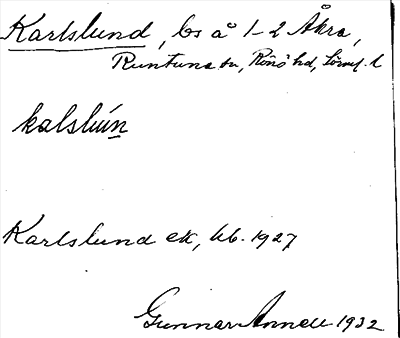 Karlslund, bs å 1-2 Åkra,
Runtuna sn, Rönö hd, Söml. l
kalslún
Karlslund ek, kb. 1927
Gunnar Annell 1932